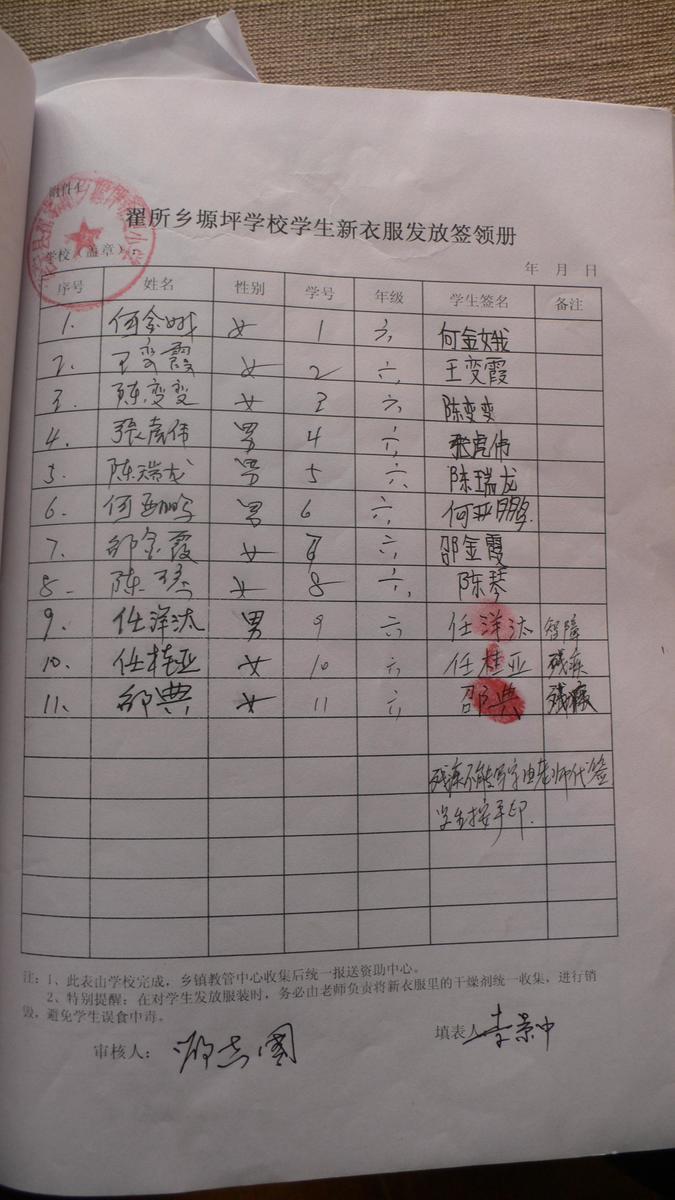 附件1
翟所乡塬坪学校学生新衣服发放签领册
学校（盖章）：
年 月 日
序号 姓名 性别 学号 年级 学生签名 备注
1. 何金娥 女 1 六 何金娥
2. 王变霞 女 2 六 王变霞
3. 陈变变 女 3 六 陈变变
4. 张虎伟 男 4 六 张虎伟
5. 陈瑞龙 男 5 六 陈瑞龙
6. 何亚鹏 男 6 六 何亚鹏
7. 邵金霞 女 7 六 邵金霞
8. 陈琴 女 8 六 陈琴
9. 任洋汰 男 9 六 任洋汰 智障
10. 任桂亚 女 10 六 任桂亚 残疾
11. 邵典 女 11 六 邵典 残疾
残疾不能写字由老师代签
学生按手印.
注：1、此表由学校完成，乡镇教管中心收集后统一报送资助中心。
2、特别提醒：在对学生发放服装时，务必由老师负责将新衣服里的干燥剂统一收集，进行销
毁，避免学生误食中毒。
审核人：
填表人 李景中